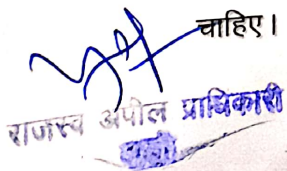 चाहिए।
राजस्व अपील प्राधिकारी